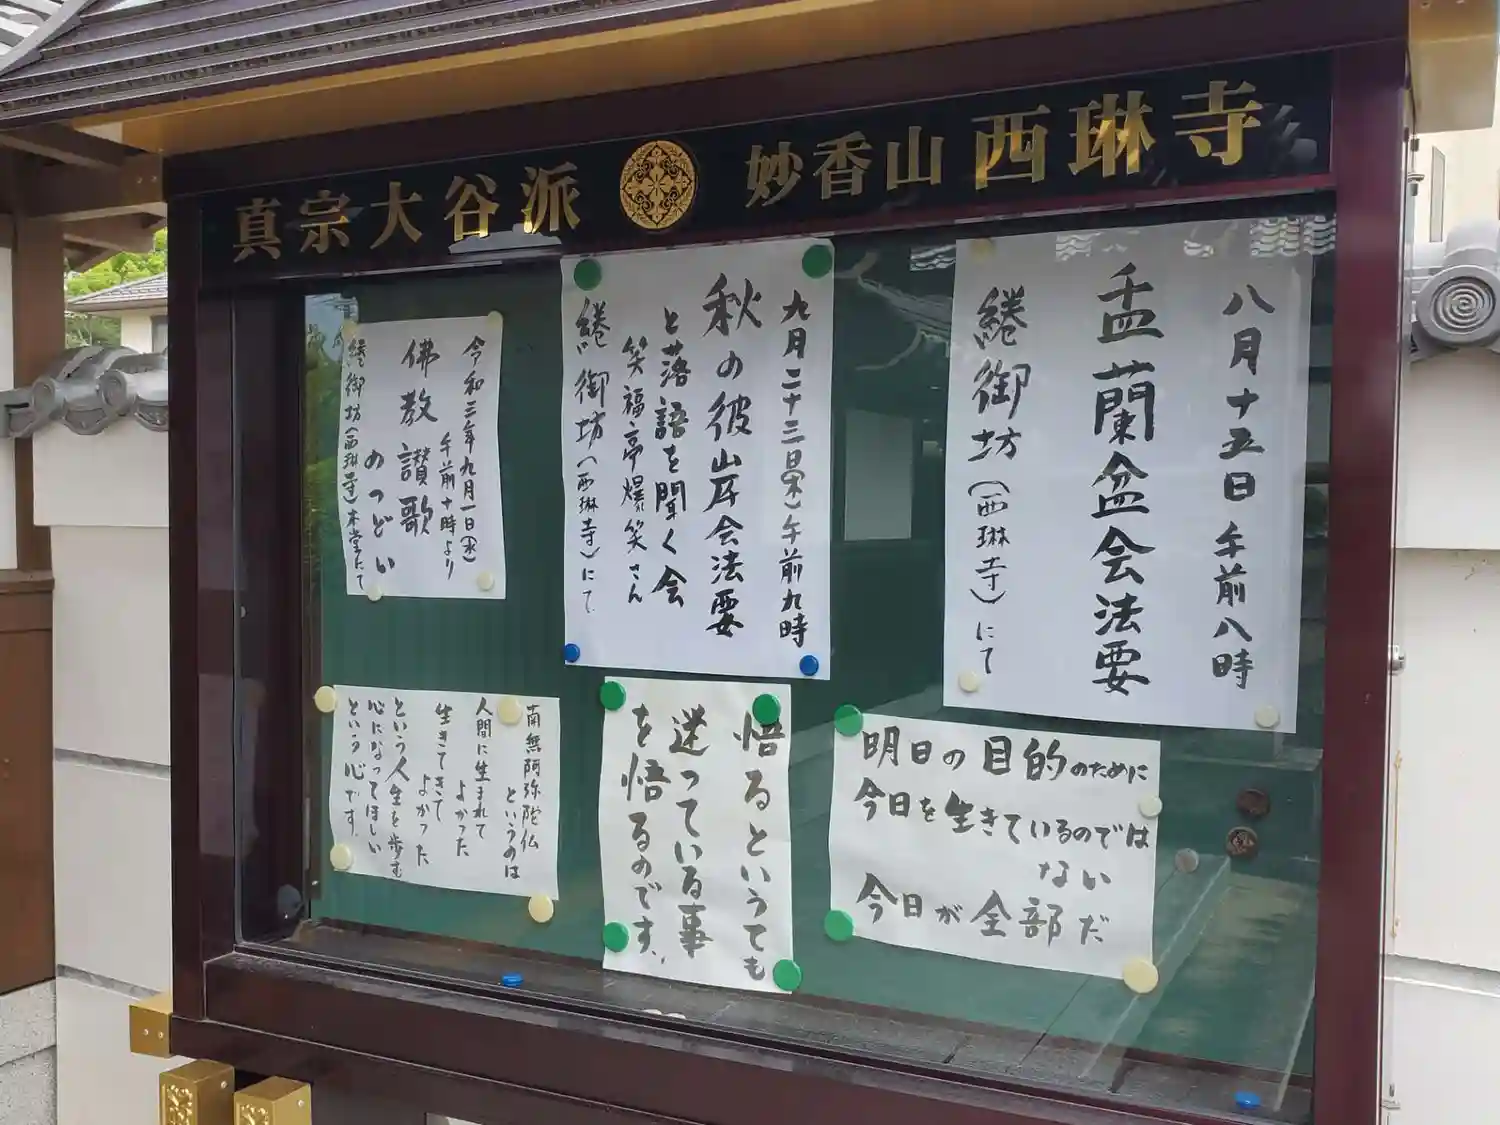 真宗大谷派 妙香山 西琳寺
八月十五日 午前八時
盂蘭盆会法要
綣御坊(西琳寺)にて
九月二十三日(木)午前九時
秋の彼岸会法要
と落語を聞く会
笑福亭爆笑さん
綣御坊(西琳寺)にて
令和三年九月一日(水)
午前十時より
佛教讃歌
のつどい
綣御坊(西琳寺)本堂にて
明日の目的のために
今日を生きているのでは
ない
今日が全部だ
悟るというても
迷っている事
を悟るのです、
南無阿弥陀仏
というのは
人間に生まれて
よかった
生きてきて
よかった
という人生を歩む
心になってほしい
という心です。